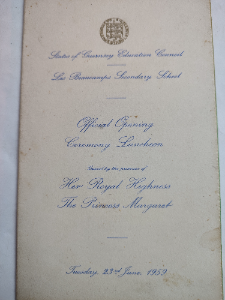 States of Guernsey Education Council
Les Beaucamps Secondary School
Official Opening
Ceremony Luncheon
by the presence of
Her Royal Highness
The Princess Margaret
Tuesday, 23rd June, 1959